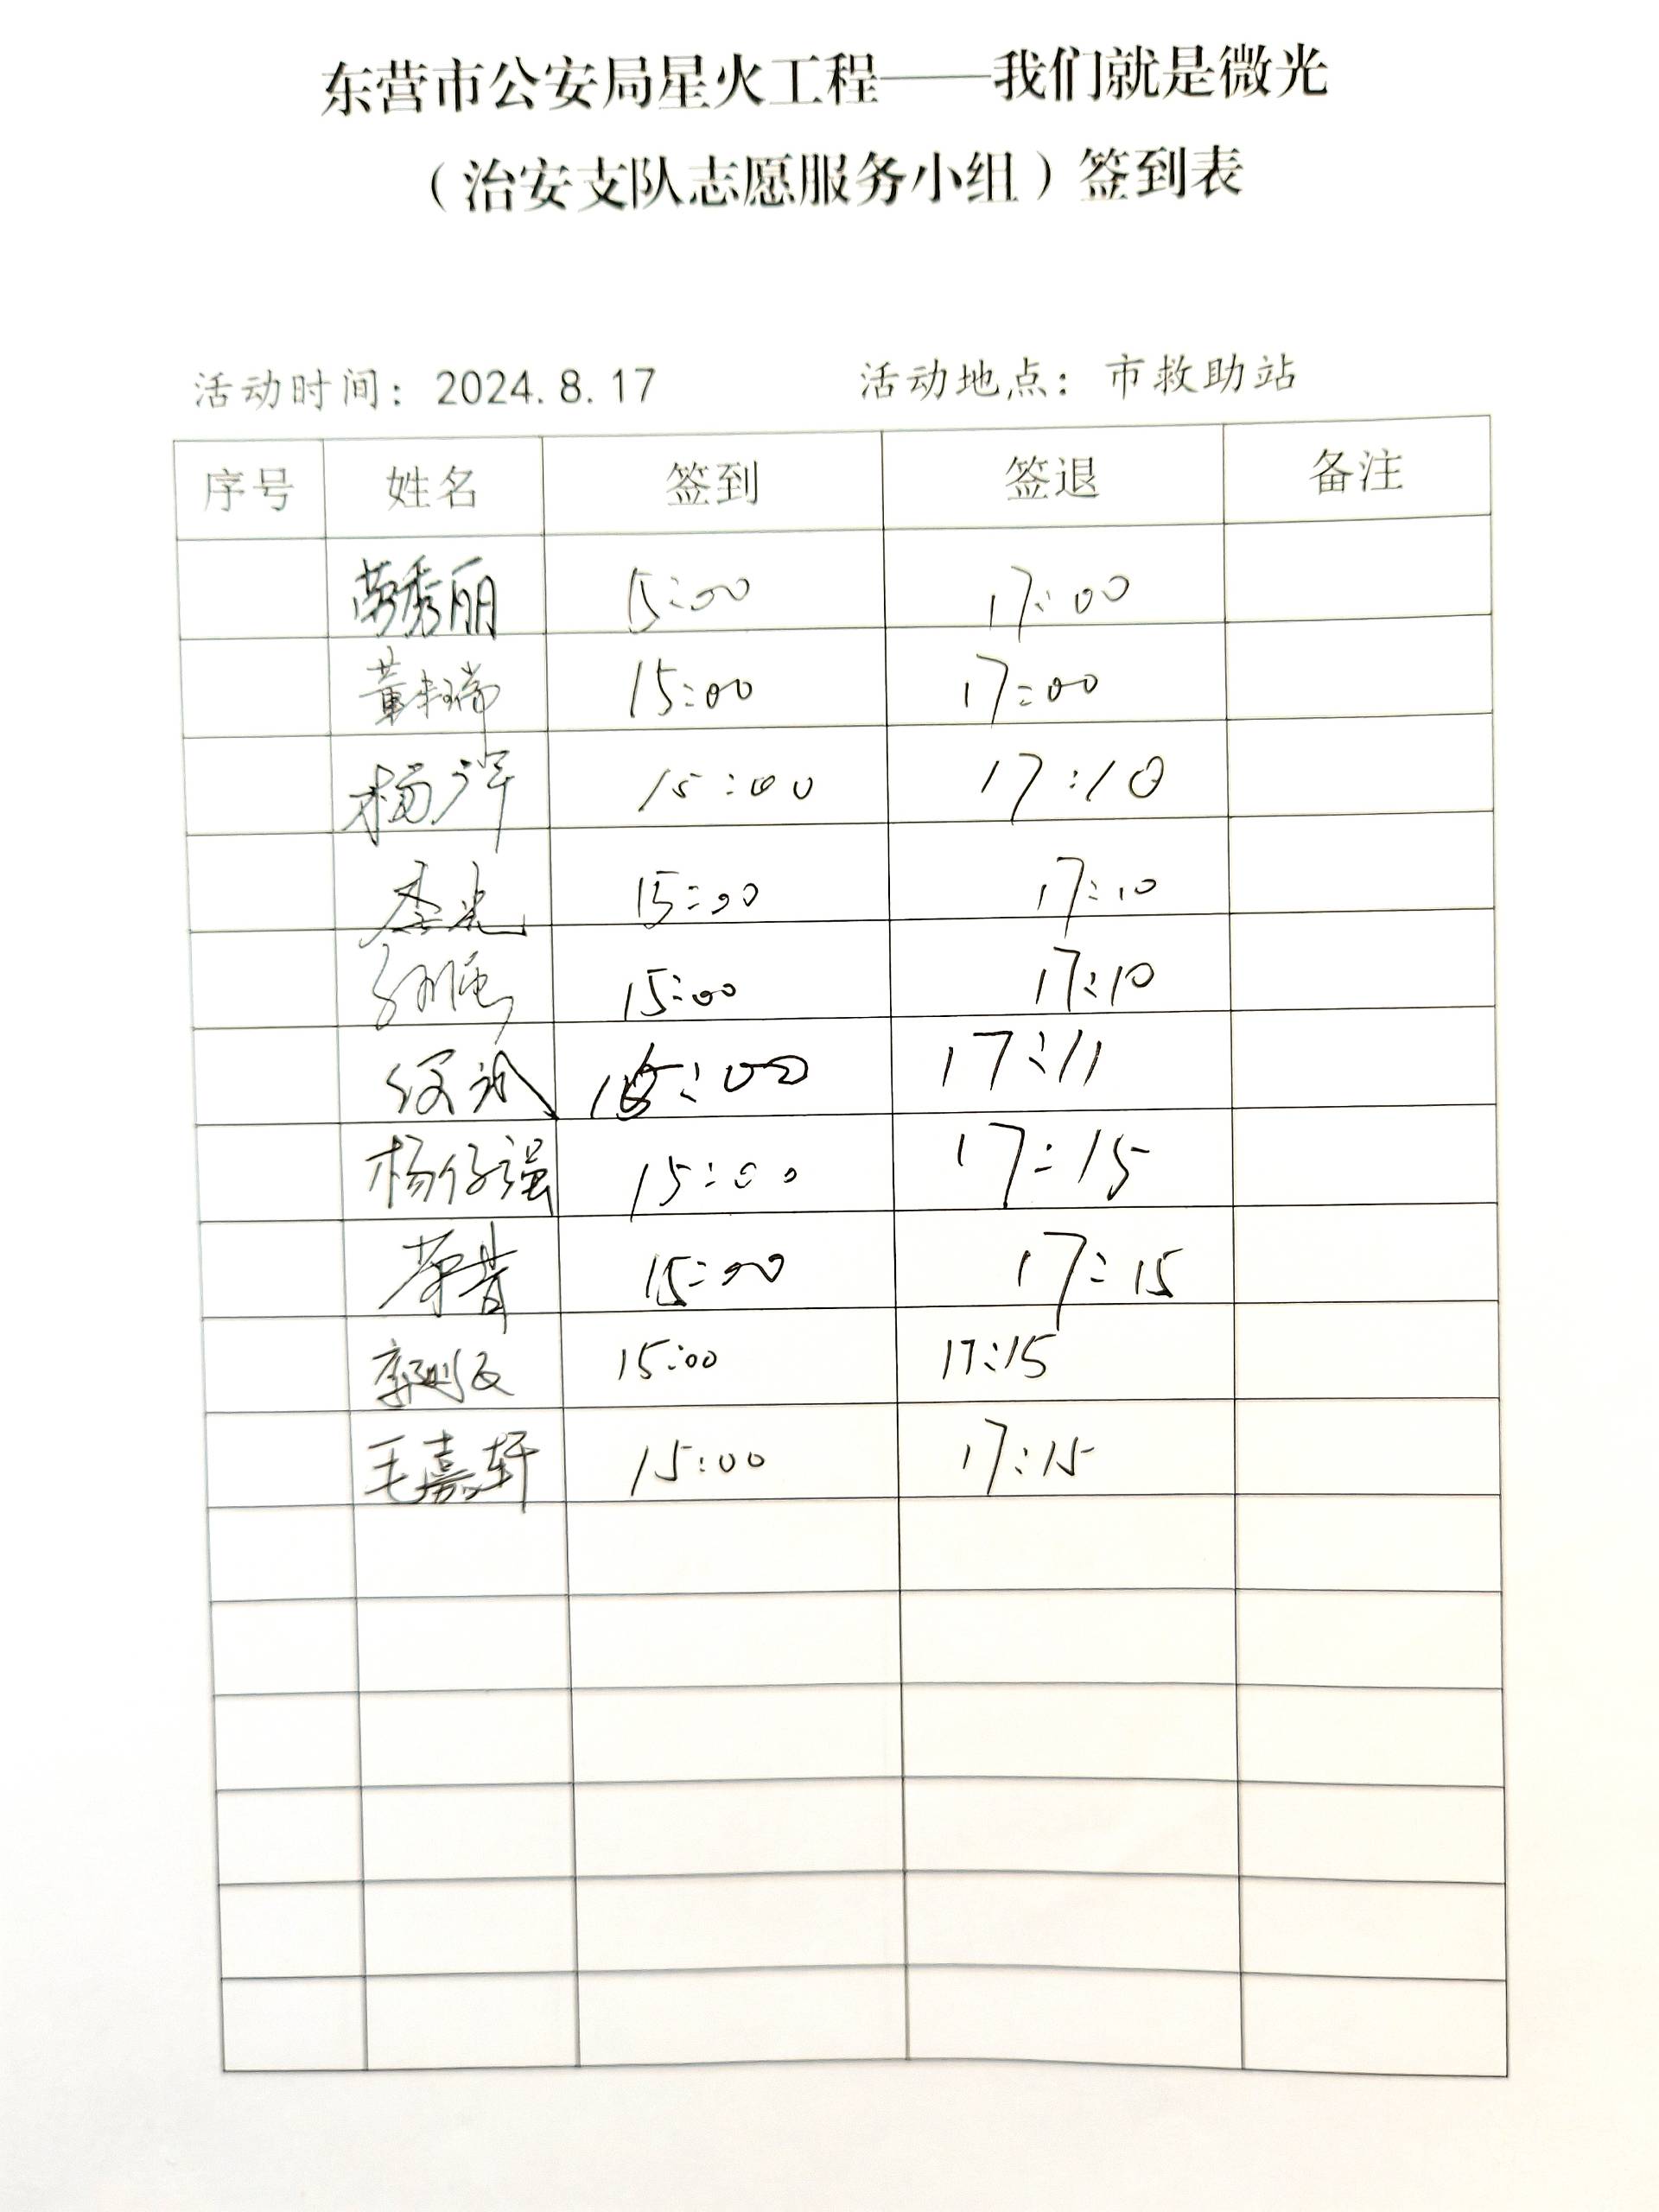 东营市公安局星火工程——我们就是微光
（治安支队志愿服务小组）签到表
活动时间：2024.8.17 活动地点：市救助站
序号 姓名 签到 签退 备注
秀丽 15:00 17:00
董 瑞 15:00 17:00
杨洋 15:00 17:10
李光 15:00 17:10
15:00 17:10
17:11
杨仔强 15:00 17:15
15:00 17:15
15:00 17:15
毛嘉轩 15:00 17:15